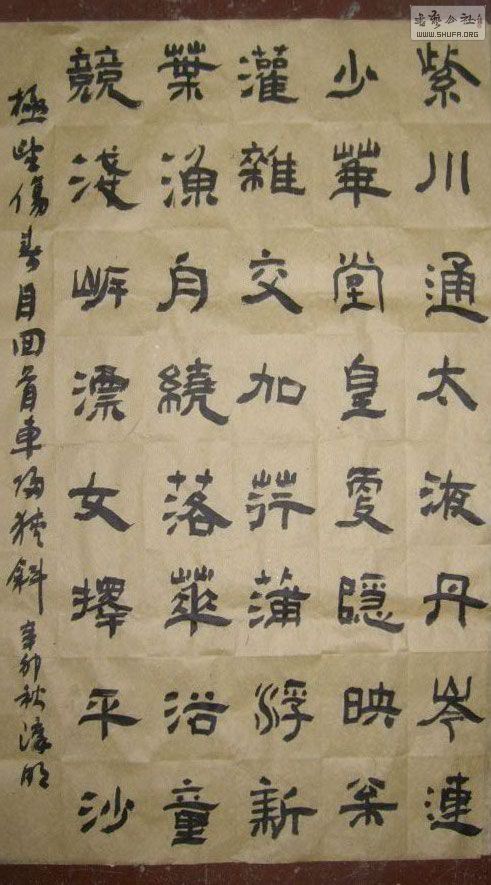 紫川通太液丹岑連
少華堂皇更隱映枀
灌雜交加荇蒲浮新
葉漁舟繞落華浴童
競淺岸漂女擇平沙
極望傷春目回首車歸狹斜 辛卯秋
书艺公社
WWW.SHUFA.ORG